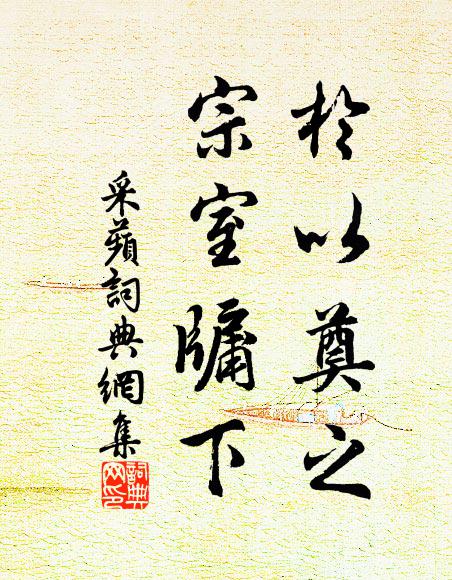 於以奠之
宗室牖下
采蘋詞典網集
詞典网印